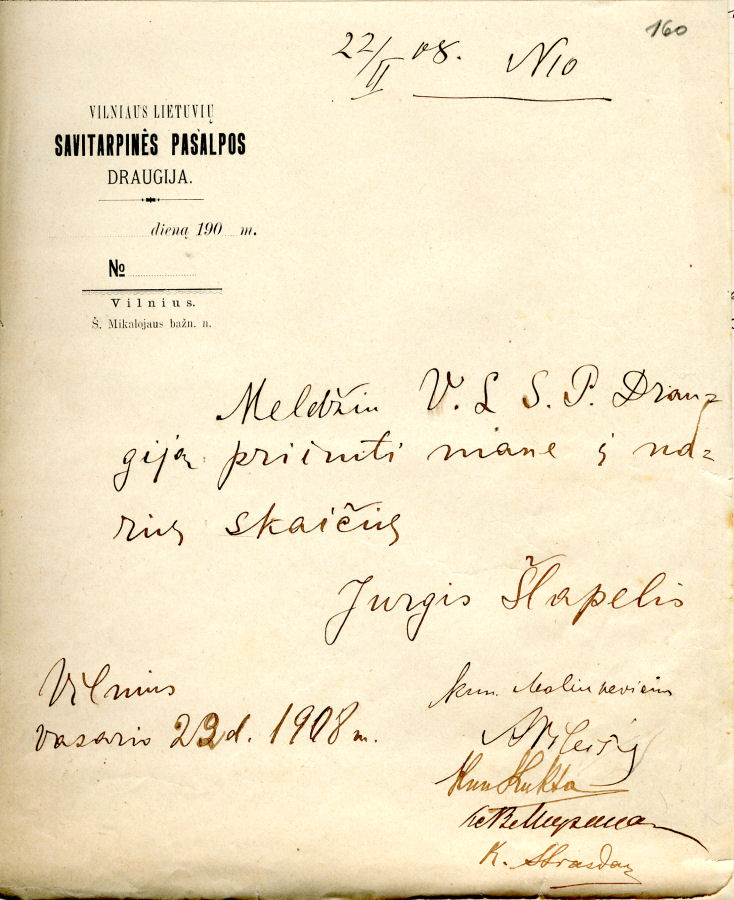 160
22/II 08. N10
VILNIAUS LIETUVIŲ
SAVITARPINĖS PAŠALPOS
DRAUGIJA.
dieną 190 m.
№
Vilnius.
Š. Mikalojaus bažn. n.
Meldžiu V. L S. P. Drau=
giją priimti mane į na=
rių skaičių
Jurgis Šlapelis
Vilnius
vasario 22 d. 1908 m.
kun.
Kun Kukta
K. Strazdas